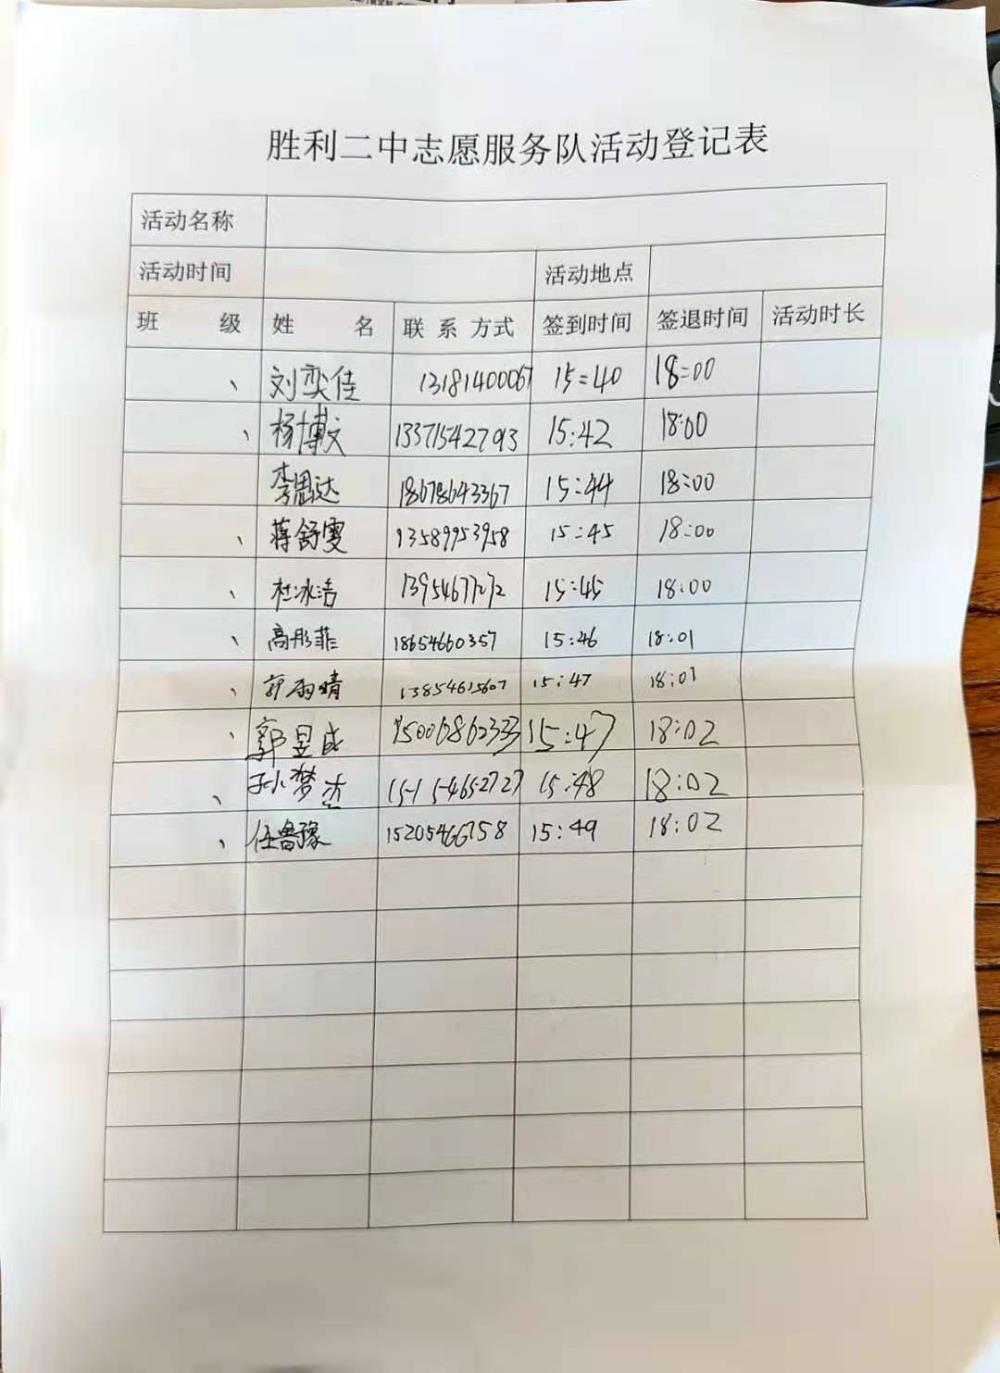 胜利二中志愿服务队活动登记表
活动名称
活动时间 活动地点
班 级 姓 名 联系方式 签到时间 签退时间 活动时长
、 刘奕佳 13181400067 15:40 18:00
、 杨博文 13371542793 15:42 18:00
李思达 18678643367 15:44 18:00
、 蒋舒雯 13589953958 15:45 18:00
、 杜冰洁 15:45 18:00
、 高彤菲 18654660357 15:46 18:01
、 郭雨晴 13854615607 15:47 18:01
、 郭昱成 15006862333 15:47 18:02
、 孙梦杰 15154652727 15:48 18:02
、 任鲁豫 15205466758 15:49 18:02